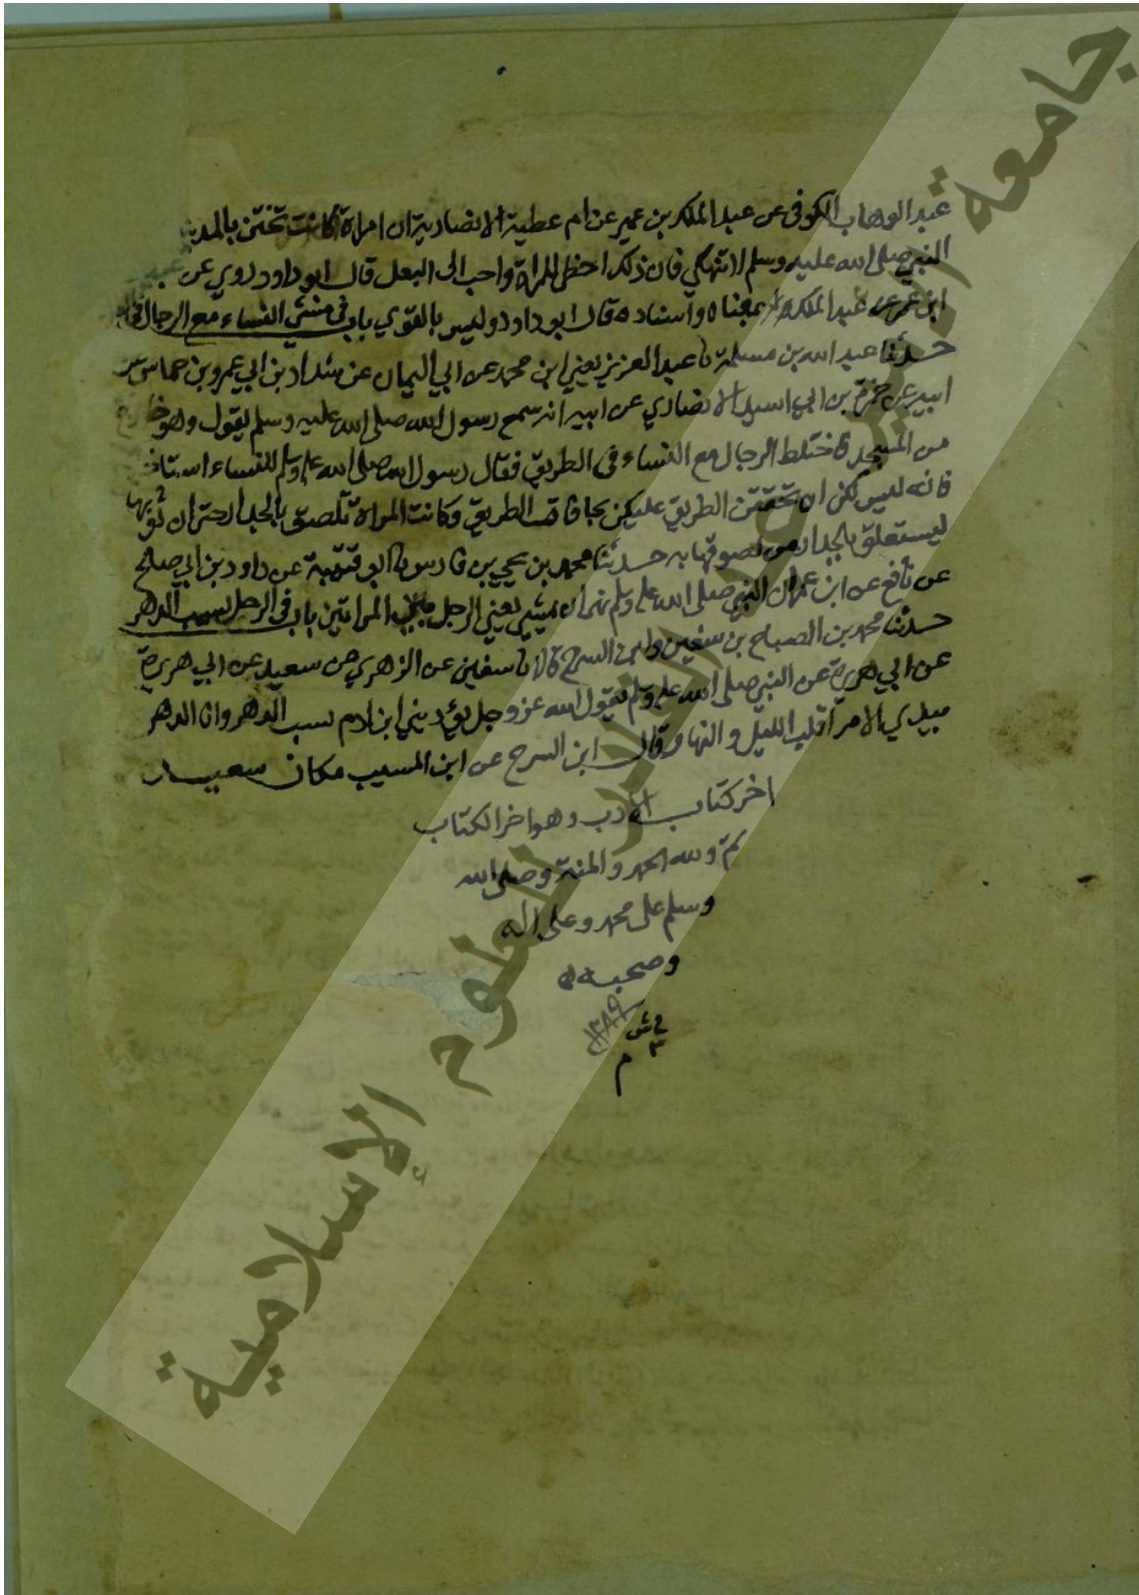 عبد الوهاب الكوفى عن عبد الملك بن عمير عن ام عطية الانصارية ان امراة كانت تختن بالمدينة
النبي صلى الله عليه وسلم لا تنهكي فان ذلك احظى للمراة واحب الى البعل قال ابو داود روي عن عبيد
ابن عمر عن عبد الملك بمعناه واسناده قال ابو داود وليس بالقوي باب فى مشي النساء مع الرجال فى
حدثنا عبد الله بن مسلمة نا عبد العزيز يعني ابن محمد عن ابي اليمان عن شداد بن ابي عمرو بن حماس عن
ابيه عن حمزة بن ابي اسيد الانصاري عن ابيه انه سمع رسول الله صلى الله عليه وسلم يقول وهو خارج
من المسجد فاختلط الرجال مع النساء فى الطريق فقال رسول الله صلى الله عليه وسلم للنساء استاخرن
فانه ليس لكن ان تحققن الطريق عليكن بحافات الطريق وكانت المراة تلصق بالجدار حتى ان ثوبها
ليستعلق بالجدار من لصوقها به حدثنا محمد بن يحيى بن فارس نا ابو قتيبة عن داود بن ابي صالح
عن نافع عن ابن عمر ان النبي صلى الله عليه وسلم نهى ان يمشي يعني الرجل بين المراتين باب فى الرجل يسب الدهر
حدثنا محمد بن الصباح بن سفين وابن السرح قالا نا سفين عن الزهري عن سعيد عن ابي هريرة
عن ابي هريرة عن النبي صلى الله عليه وسلم يقول الله عز وجل يؤذيني ابن ادم يسب الدهر وانا الدهر
بيدي الامر اقلب الليل والنهار قال ابن السرح عن ابن المسيب مكان سعيد
اخر كتاب الادب وهو اخر الكتاب
تم ولله الحمد والمنة وصلى الله
وسلم على محمد وعلى اله
وصحبه
في ش ١٢٨٩
٣
م
جامعة الأمير عبد القادر للعلوم الإسلامية